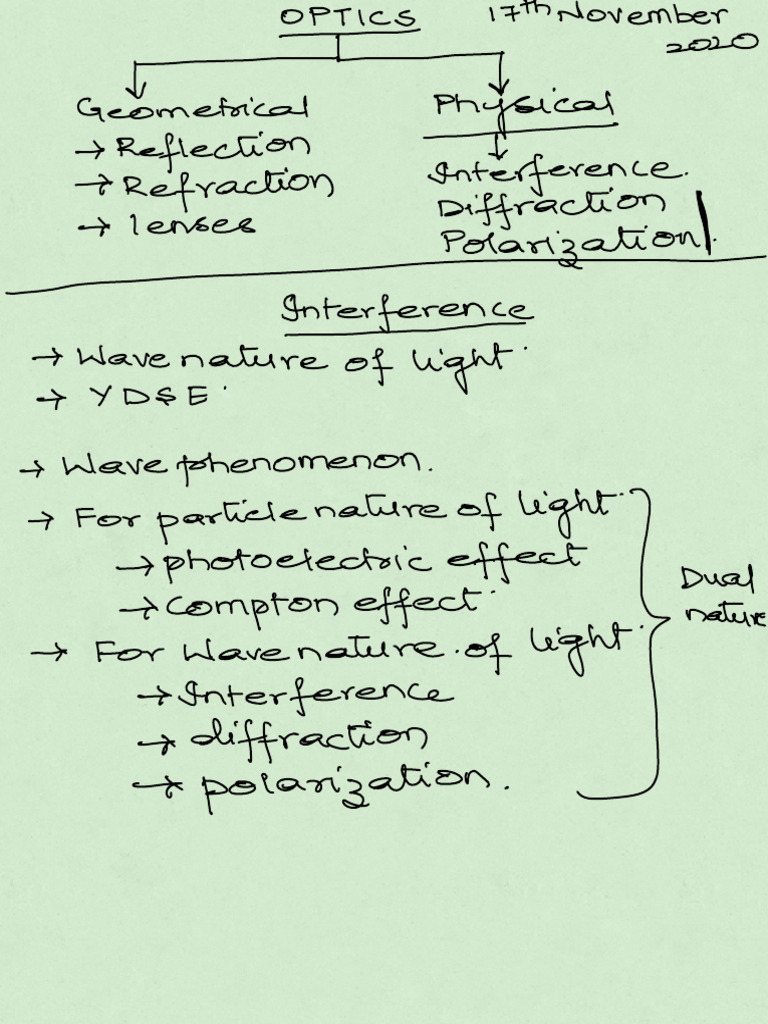 OPTICS 17th November
2020
Geometrical Physical
→ Reflection
→ Refraction Interference.
→ lenses Diffraction
Polarization
Interference
→ Wave nature of light.
→ YDSE.
→ Wave phenomenon.
→ For particle nature of light.
→ photoelectric effect
→ Compton effect.
→ For Wave nature of light.
→ Interference
→ diffraction
→ polarization.
Dual
nature